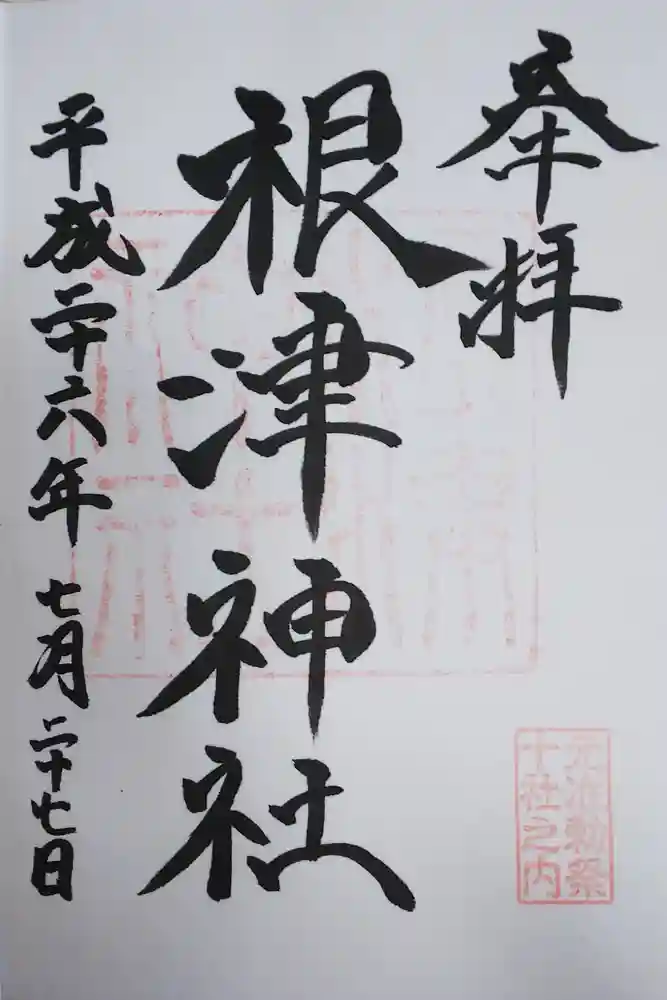 奉拝
根津神社
平成二十六年七月二十七日
元准勅祭
十社之内